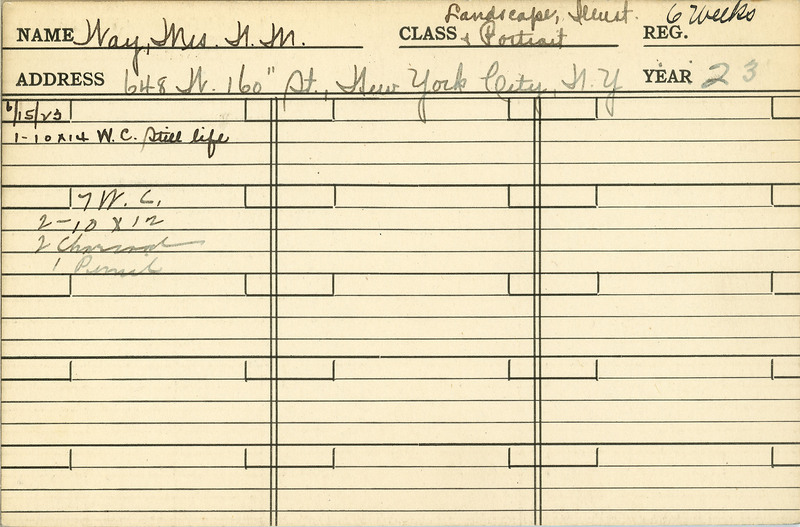 Landscape, Illust. 6 Weeks
NAME Way, Mrs. H. M. CLASS & Portrait REG.
ADDRESS 648 W. 160" St., New York City, N.Y YEAR 23
6/15/23
1-10x14 W.C. Still life
7 W. C.
2-10 x 12
2 Charcoal
1 Pencil